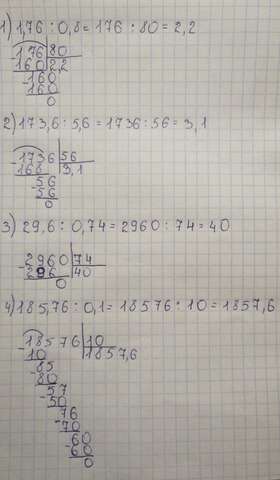 1) 1,76 : 0,8 = 176 : 80 = 2,2
176 | 80
160 | 2,2
-160
160
0
2) 173,6 : 5,6 = 1736 : 56 = 3,1
-1736 | 56
168 | 3,1
-56
56
0
3) 29,6 : 0,74 = 2960 : 74 = 40
-2960 | 74
296 | 40
0
4) 185,76 : 0,1 = 18576 : 10 = 1857,6
-18576 | 10
10 | 1857,6
-85
80
-57
50
-76
70
-60
60
0